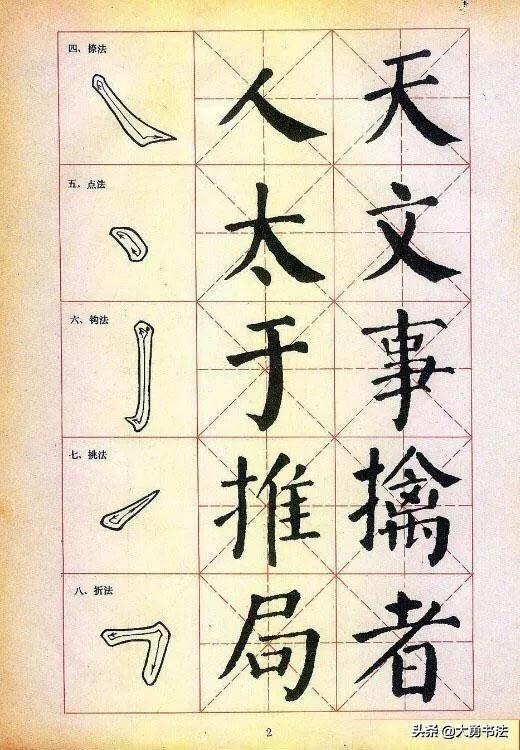 四、捺法
人天
五、点法
太文
六、钩法
于事
七、挑法
推擒
八、折法
局者
2
头条 @大勇书法